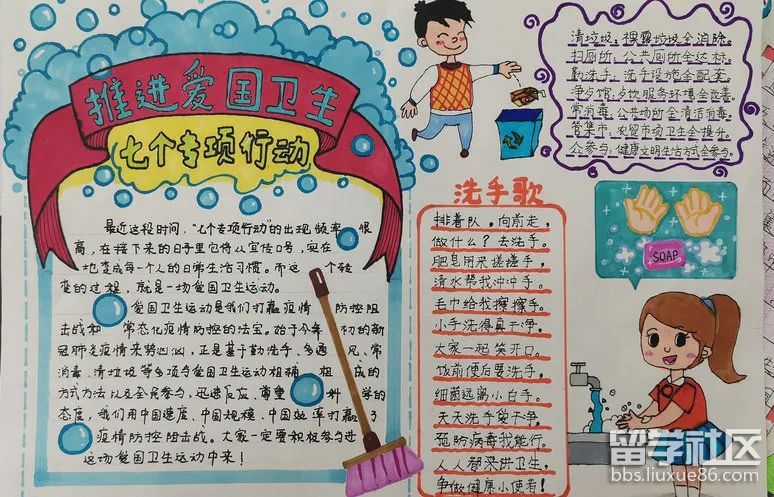 推进爱国卫生
七个专项行动
最近这段时间,“七个专项行动”的出现频率 很
高,在接下来的日子里它将从宣传口号,实在
地变成每个人的日常生活习惯。而这 个转
变的过程,就是一场爱国卫生运动。
爱国卫生运动是我们打赢疫情 防控阻
击战和 常态化疫情防控的法宝。始于今年 初的新
冠肺炎疫情来势汹汹,正是基于勤洗手、多通 风、常
消毒、清垃圾等多项与爱国卫生运动相 相 成的
方式方法以及全民参与,迅速反应、尊重 科 学的
态度,我们用中国速度、中国规模、中国效率打赢 了
疫情防控阻击战。大家一定要积极参与进
这场爱国卫生运动中来!
清垃圾,裸露垃圾全消除。
扫厕所,公共厕所全达标。
勤洗手,洗手设施全配套。
净餐馆,餐饮服务环境全改善。
常消毒,公共场所全清洁消毒。
管集市,农贸市场卫生全提升。
众参与,健康文明生活方式全参与。
洗手歌
排着队,向前走,
做什么?去洗手。
肥皂用来搓搓手,
清水帮我冲冲手。
毛巾给我擦擦手,
小手洗得真干净。
大家一起笑开口。
饭前便后要洗手,
细菌远离小白手。
天天洗手
预防病毒我能行。
人人都来讲卫生,
争做健康小使者!
SOAP
留学社区
bbs.liuxue86.com